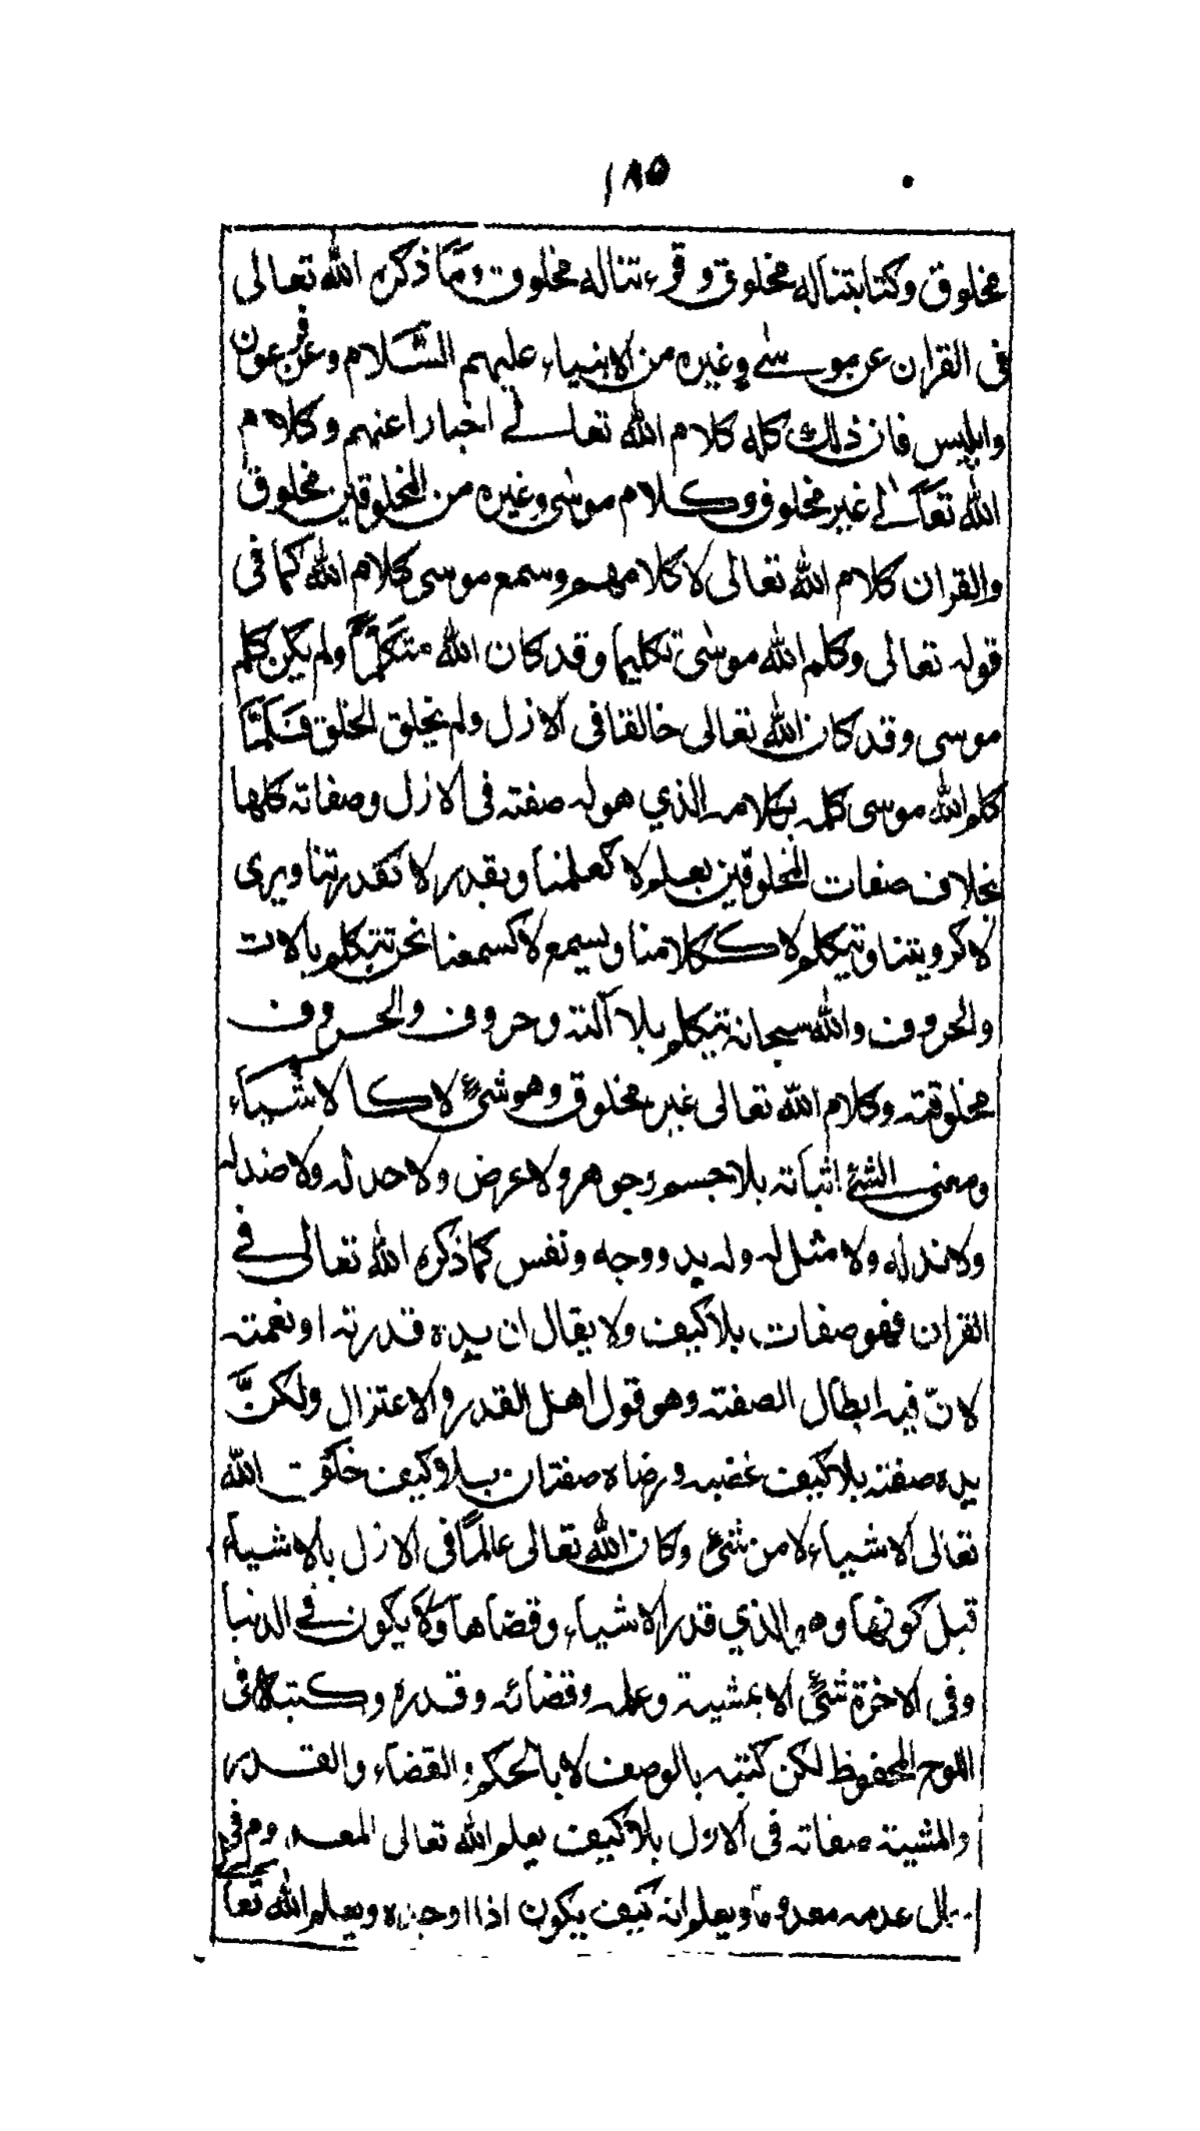 ١٨٥
مخلوق وكتابتناله مخلوق وقرءتناله مخلوق وما ذكره الله تعالى
فى القران عن موسى وغيره من الانبياء عليهم السلام وعن فرعون
وابليس فان ذلك كله كلام الله تعالى اخبارا عنهم وكلام
الله تعالى غير مخلوق وكلام موسى وغيره من المخلوقين مخلوق
والقران كلام الله تعالى لا كلامهم وسمع موسى كلام الله كما فى
قوله تعالى وكلم الله موسى تكليما وقد كان الله متكلما ولم يكن كلم
موسى وقد كان الله تعالى خالقا فى الازل ولم يخلق الخلق فلما
كلم الله موسى كلمه بكلامه الذي هو له صفته فى الازل وصفاته كلها
بخلاف صفات المخلوقين يعلم لا كعلمنا ويقدر لا كقدرتنا ويرى
لا كرويتنا ويتكلم لا ككلامنا ويسمع لا كسمعنا نحن نتكلم بالالات
والحروف والله سبحانه يتكلم بلا آلته وحروف والحروف
مخلوقته وكلام الله تعالى غير مخلوق وهو شئ لا كالاشياء
ومعنى الشئ اثباته بلا جسم وجوهر ولا عرض ولا حد له ولا ضد له
ولا ند له ولا مثل له وله يد ووجه ونفس كما ذكره الله تعالى في
القران فهو صفات بلا كيف ولا يقال ان يده قدرته او نعمته
لان فيه ابطال الصفته وهو قول اهل القدر والاعتزال ولكن
يده صفته بلا كيف غضبه ورضاه صفتان بلا كيف خلق الله
تعالى الاشياء لا من شئ وكان الله تعالى عالما فى الازل بالاشياء
قبل كونها وهو الذي قدر الاشياء وقضاها ولا يكون في الدنيا
وفى الاخرة شئ الا بمشيته وعلمه وقضائه وقدره وكتبه فى
اللوح المحفوظ لكن كتبه بالوصف لا بالحكم والقضاء والقدر
والمشية صفاته فى الازل بلا كيف يعلم الله تعالى المعدوم فى
حال عدمه معدوما ويعلم انه كيف يكون اذا اوجده ويعلم الله تعا